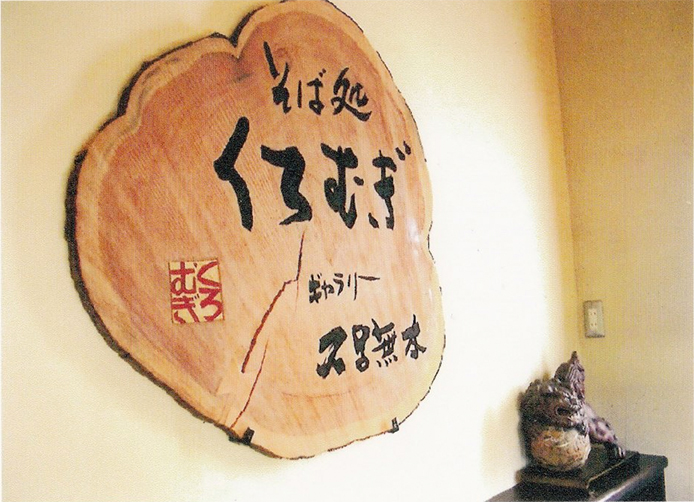 そば処
くろむぎ
ギャラリー
久呂無木
くろ
むぎ